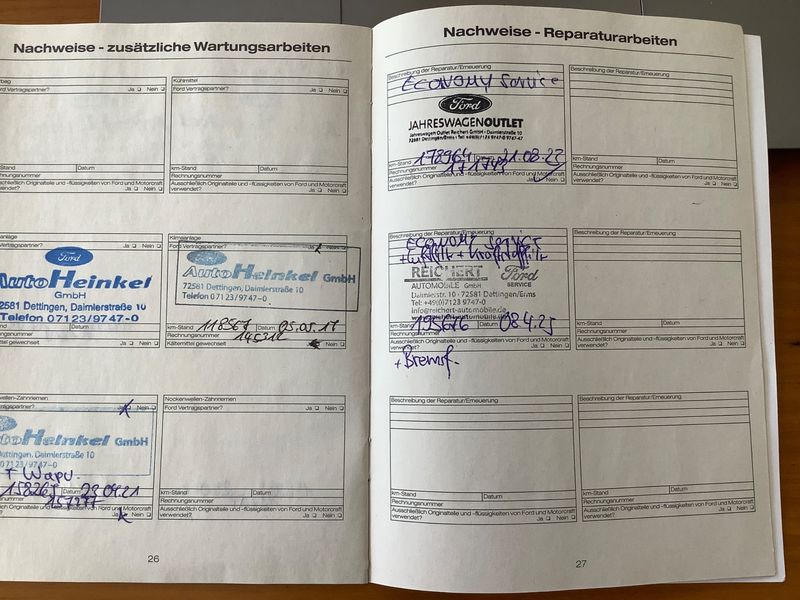 Nachweise - zusätzliche Wartungsarbeiten
Ford Vertragspartner? Ja Nein
km-Stand Datum
Rechnungsnummer
Kühlmittel
Ford Vertragspartner? Ja Nein
km-Stand Datum
Rechnungsnummer
Ausschließlich Originalteile und -flüssigkeiten von Ford und Motorcraft
verwendet? Ja Nein
Ford
AutoHeinkel
GmbH
72581 Dettingen, Daimlerstraße 10
Telefon 07123/9747-0
Datum
Nein
Klimaanlage
Ford Vertragspartner? Nein
AutoHeinkel GmbH
72581 Dettingen, Daimlerstraße 10
Telefon 07123/9747-0
km-Stand 118567 Datum 05.05.17
Rechnungsnummer
Kältemittel gewechselt Nein
Nein
AutoHeinkel GmbH
Dettingen, Daimlerstraße 10
07123/9747-0
+ Wapu
Datum
157277
Ja Nein
Nockenwellen-Zahnriemen
Ford Vertragspartner? Ja Nein
km-Stand Datum
Rechnungsnummer
Ausschließlich Originalteile und -flüssigkeiten von Ford und Motorcraft
verwendet? Ja Nein
26
Nachweise - Reparaturarbeiten
Beschreibung der Reparatur/Erneuerung
ECONOMY Service
Ford
JAHRESWAGENOUTLET
Jahreswagen Outlet Reichert GmbH · Daimlerstraße 10
km-Stand 178964 Datum 21.08.23
Rechnungsnummer
Ausschließlich Originalteile und -flüssigkeiten von Ford und Motorcraft
verwendet? Ja Nein
Beschreibung der Reparatur/Erneuerung
km-Stand Datum
Rechnungsnummer
Ausschließlich Originalteile und -flüssigkeiten von Ford und Motorcraft
verwendet? Ja Nein
Beschreibung der Reparatur/Erneuerung
ECONOMY Service
REICHERT Ford
AUTOMOBILE GmbH SERVICE
Daimlerstr. 10 · 72581 Dettingen/Erms
Tel: +49(0)7123 9747-0
info@reichert-automobile.de
km-Stand 195676 Datum 08.4.25
Rechnungsnummer
Ausschließlich Originalteile und -flüssigkeiten von Ford und Motorcraft
verwendet? Ja Nein
+ Bremsf.
Beschreibung der Reparatur/Erneuerung
km-Stand Datum
Rechnungsnummer
Ausschließlich Originalteile und -flüssigkeiten von Ford und Motorcraft
verwendet? Ja Nein
Beschreibung der Reparatur/Erneuerung
km-Stand Datum
Rechnungsnummer
Ausschließlich Originalteile und -flüssigkeiten von Ford und Motorcraft
verwendet? Ja Nein
Beschreibung der Reparatur/Erneuerung
km-Stand Datum
Rechnungsnummer
Ausschließlich Originalteile und -flüssigkeiten von Ford und Motorcraft
verwendet? Ja Nein
27